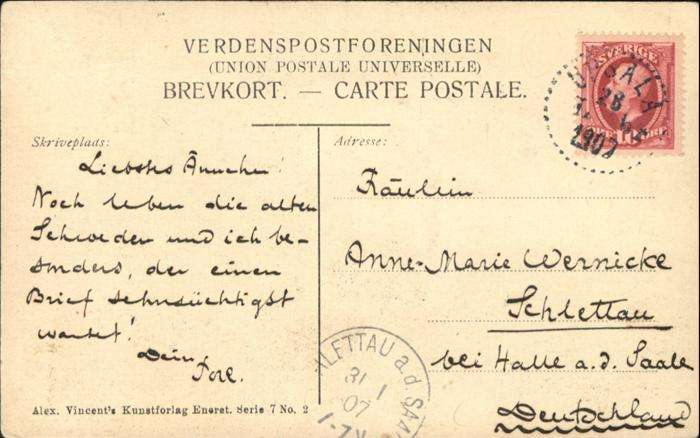 VERDENSPOSTFORENINGEN
(UNION POSTALE UNIVERSELLE)
BREVKORT. — CARTE POSTALE.
SVERIGE
UPSALA
28
1907
Skriveplads:
Liebstes Ännchen!
Noch leben die alten
Schweden und ich be-
sonders, der einen
Brief sehnsüchtigst
wartet!
Dein
Tore.
Adresse:
Fräulein
Anne-Marie Wernicke
Schlettau
bei Halle a.d. Saale
Deutschland
LETTAU a.d. SAA
31 1
07
Alex. Vincent's Kunstforlag Eneret. Serie 7 No. 2